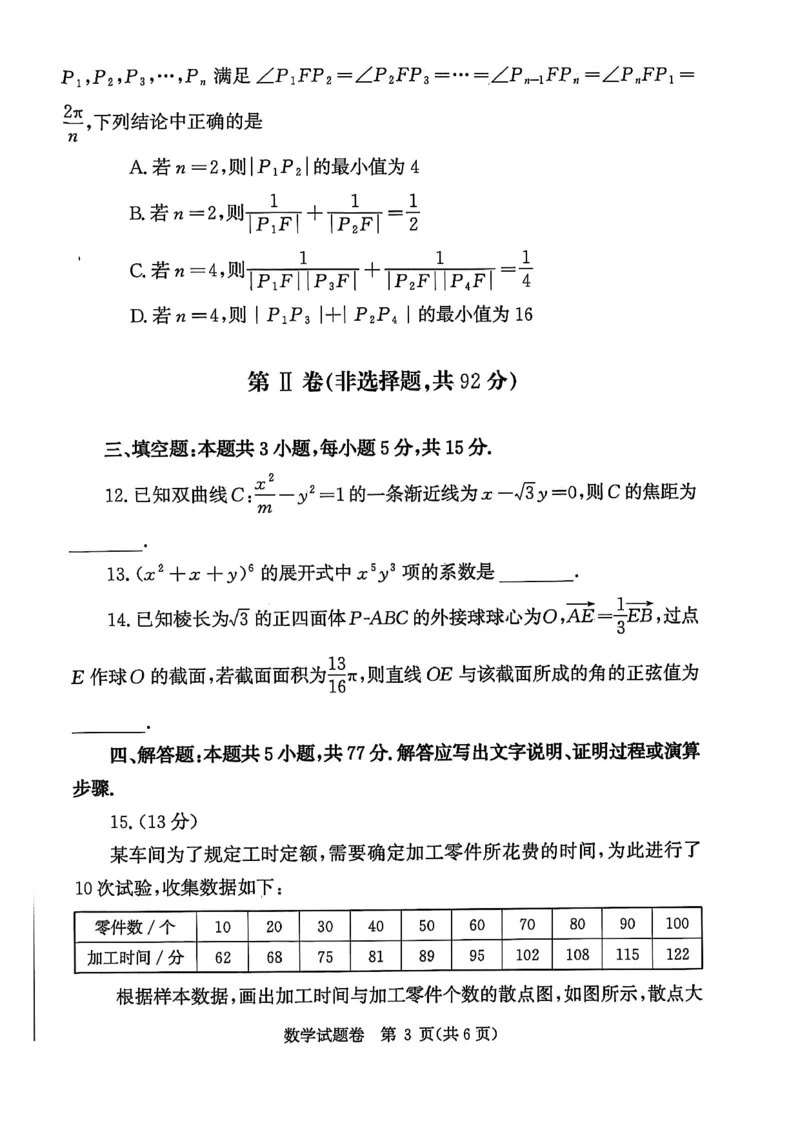 P₁,P₂,P₃,…,Pₙ 满足∠P₁FP₂=∠P₂FP₃=…=∠Pₙ₋₁FPₙ=∠PₙFP₁=
2π/n,下列结论中正确的是
A.若 n=2,则|P₁P₂|的最小值为 4
B.若 n=2,则1/|P₁F|+1/|P₂F|=1/2
C.若 n=4,则1/(|P₁F||P₃F|)+1/(|P₂F||P₄F|)=1/4
D.若 n=4,则|P₁P₃|+|P₂P₄|的最小值为 16
第 Ⅱ 卷(非选择题,共 92 分)
三、填空题:本题共 3 小题,每小题 5 分,共 15 分.
12.已知双曲线 C:x²/m-y²=1 的一条渐近线为 x-√3y=0,则 C 的焦距为
________.
13.(x²+x+y)⁶ 的展开式中 x⁵y³ 项的系数是________.
14.已知棱长为√3 的正四面体 P-ABC 的外接球球心为O,AE→=1/3EB→,过点
E 作球 O 的截面,若截面面积为13/16π,则直线 OE 与该截面所成的角的正弦值为
________.
四、解答题:本题共 5 小题,共 77 分.解答应写出文字说明、证明过程或演算
步骤.
15.(13 分)
某车间为了规定工时定额,需要确定加工零件所花费的时间,为此进行了
10 次试验,收集数据如下:
零件数/个 10 20 30 40 50 60 70 80 90 100
加工时间/分 62 68 75 81 89 95 102 108 115 122
根据样本数据,画出加工时间与加工零件个数的散点图,如图所示,散点大
数学试题卷 第 3 页(共 6 页)